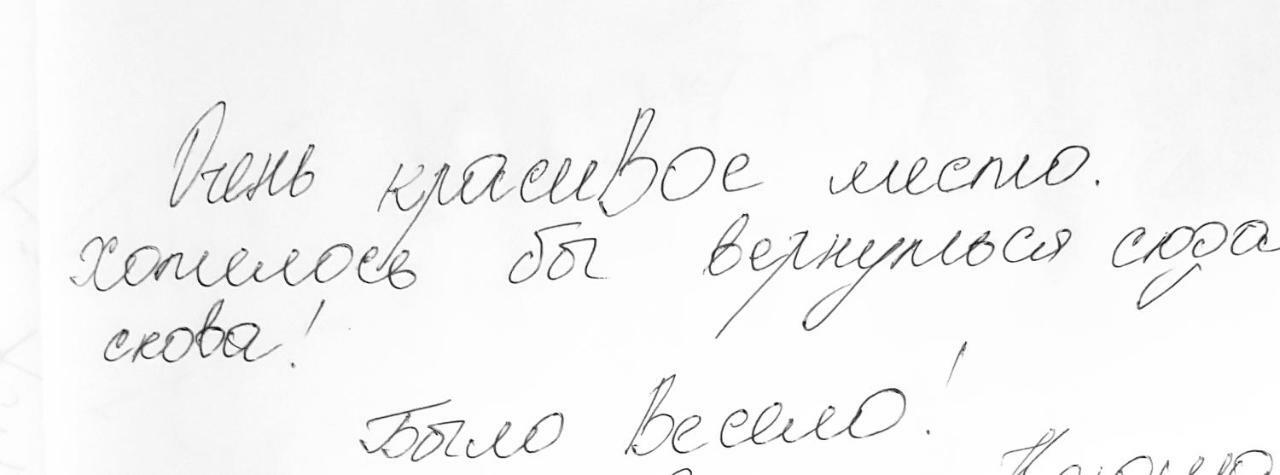 Очень красивое место.
Хотелось бы вернуться сюда
снова!
Было весело!